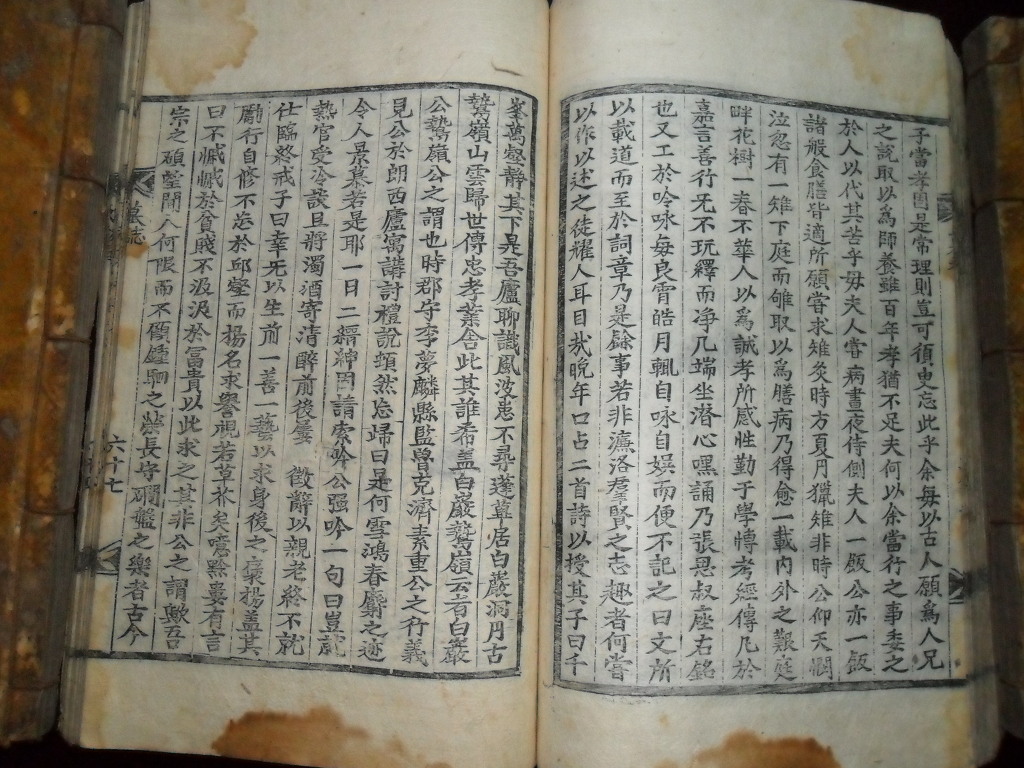 子當孝固是常理則豈可須臾忘此乎余每以古人願爲人兄
之說取以爲師養雖百年孝猶不足夫何以余當行之事委之
於人以代其苦乎毋夫人嘗病晝夜侍側夫人一飯公亦一飯
諸般食膳皆適所願嘗求雉炙時方夏月獵雉非時公仰天憫
泣忽有一雉下庭而雊取以爲膳病乃得愈一載內外之艱庭
畔花樹一春不華人以爲誠孝所感性勤于學博考經傳凡於
嘉言善行旡不玩繹而净几端坐潜心嘿誦乃張思叔座右銘
也又工於吟咏每良霄皓月輒自咏自娛而便不記之曰文所
以載道而至於詞章乃是餘事若非濂洛羣賢之志趣者何嘗
以作以述之徒耀人耳目㦲晩年口占二首詩以授其子曰千
峯萬壑靜其下是吾廬聊識風波患不尋蓬草居白巖洞月古
鷲嶺山雲歸世傳忠孝業舍此其誰希盖白巖鷲嶺云者白巖
公鷲嶺公之謂也時郡守李夢麟縣監曾克濟素重公之行義
見公於朗西廬寓講討禮說頓然忘歸曰是何雪鴻春麝之迹
令人景慕若是耶一日二縉紳因請索吟公强吟一句曰豈就
熱官受冷談且將濁酒寄清醉前後屢 徵辭以親老終不就
仕臨終戒子曰幸旡以生前一善一藝以求身後之褒揚盖其
勵行自修不忘於邱壑而揚名求譽視若草芥矣噫黔婁有言
曰不慽慽於貧賤不汲汲於富貴以此求之其非公之謂歟吾
宗之碩望聞人何限而不願鍾駟之榮長守磵盤之樂者古今
墓誌
六十七